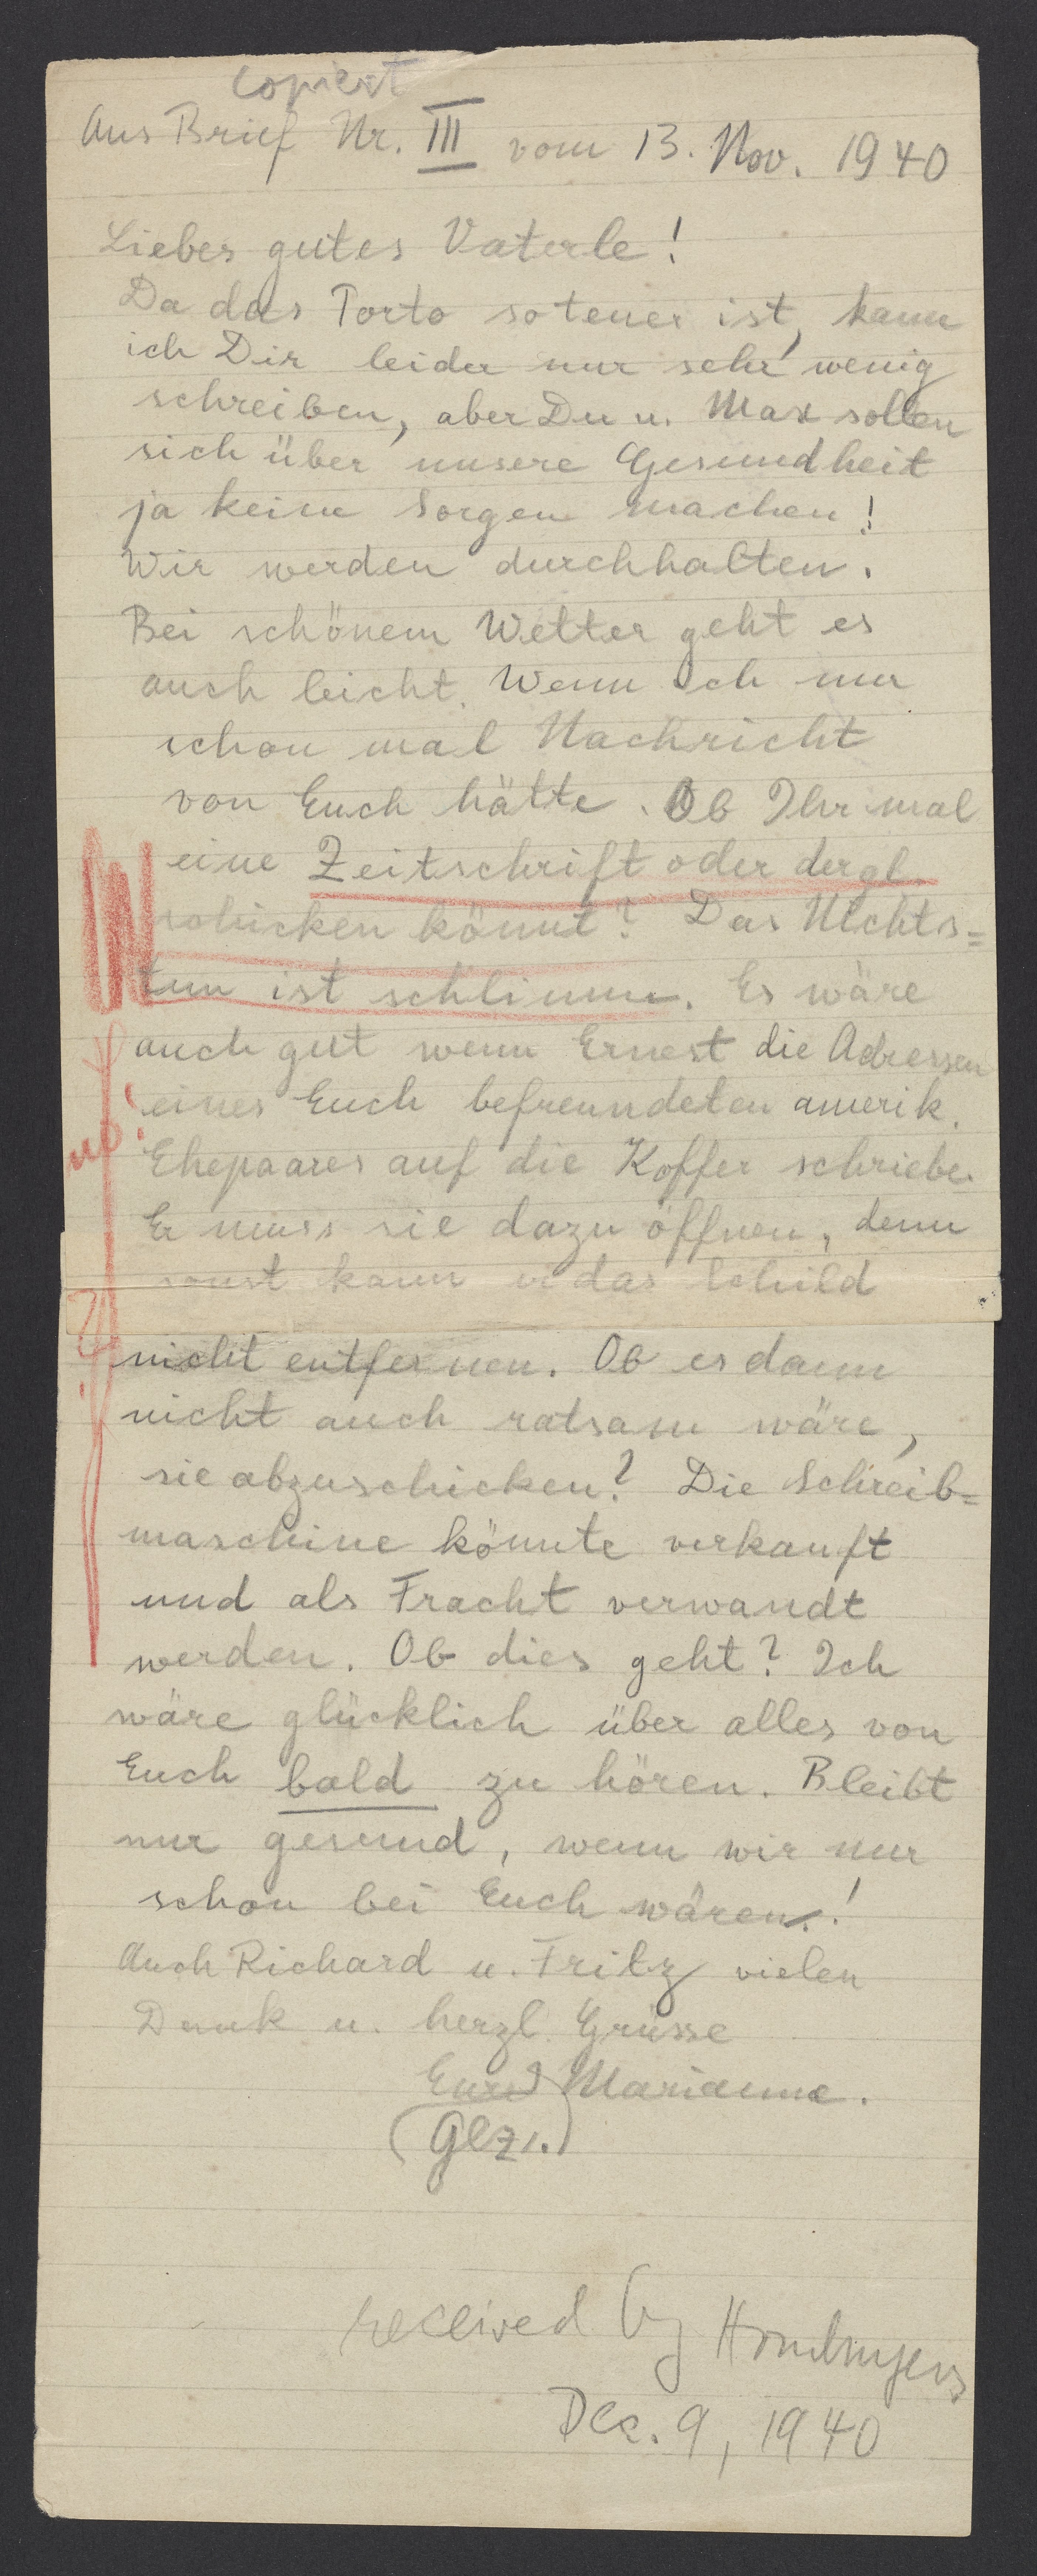 copiert
Aus Brief Nr. III vom 13. Nov. 1940
Lieber gutes Vaterle!
Da das Porto so teuer ist, kann
ich Dir leider nur sehr wenig
schreiben, aber Du u. Max sollen
sich über unsere Gesundheit
ja keine Sorgen machen!
Wir werden durchhalten.
Bei schönem Wetter geht es
auch leicht. Wenn ich nur
schon mal Nachricht
von Euch hätte. Ob Ihr mal
eine Zeitschrift oder dergl.
schicken könnt? Das Nichts=
tun ist schlimm. Es wäre
auch gut wenn Ernest die Adressen
eines Euch befreundeten amerik.
no!
Ehepaares auf die Koffer schriebe.
Er muss sie dazu öffnen, denn
sonst kann er das Schild
nicht entfernen. Ob es dann
nicht auch ratsam wäre,
sie abzuschicken? Die Schreib=
maschine könnte verkauft
und als Fracht verwandt
werden. Ob dies geht? Ich
wäre glücklich über alles von
Euch bald zu hören. Bleibt
nur gesund, wenn wir nur
schon bei Euch wären!
Auch Richard u. Fritz vielen
Dank u. herzl. Grüsse
Eure Marianne.
(Glz.)
received by
Dec. 9, 1940